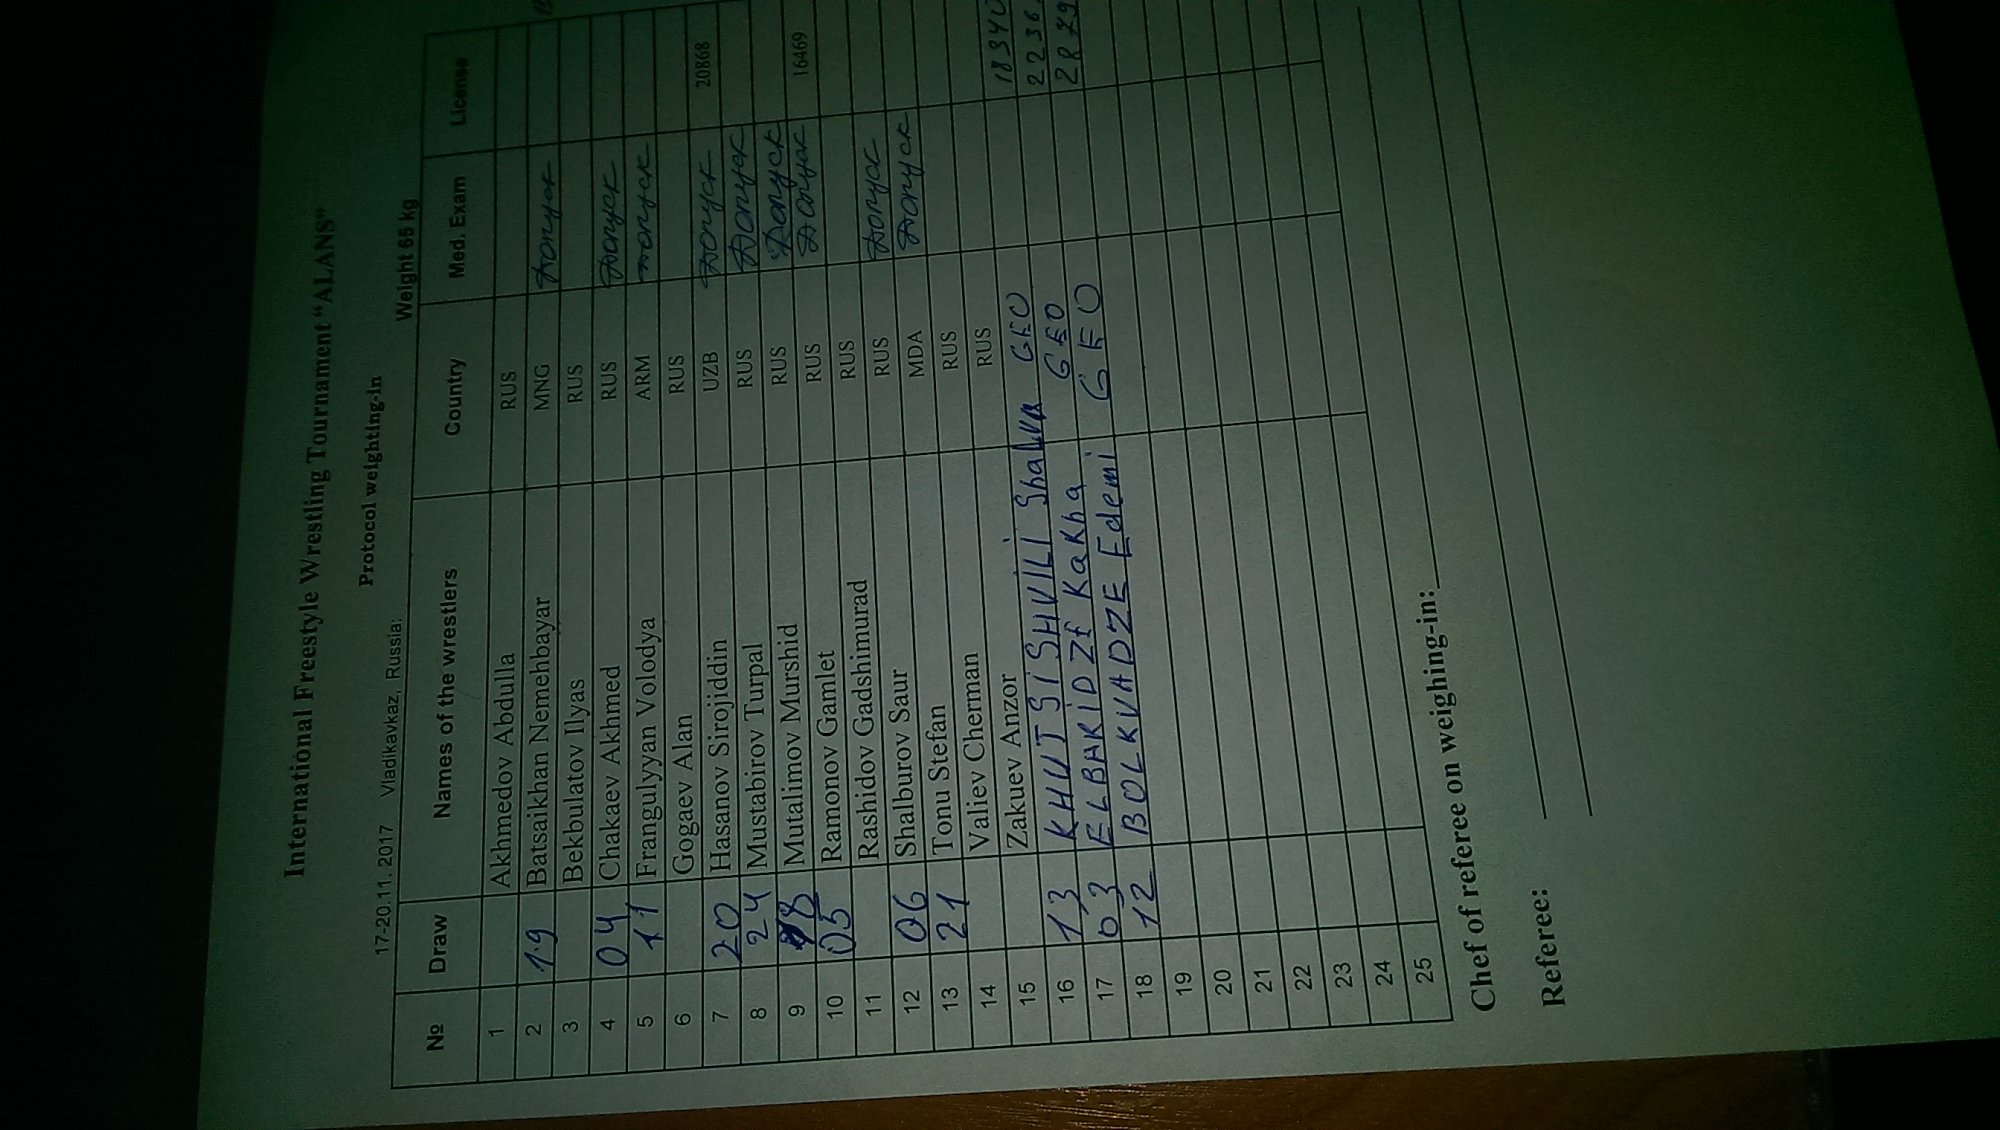 International Freestyle Wrestling Tournament "ALANS"
Protocol weighting-in
17-20.11. 2017 Vladikavkaz, Russia: Weight 65 kg
№ Draw Names of the wrestlers Country Med. Exam License
1 Akhmedov Abdulla RUS
2 19 Batsaikhan Nemehbayar MNG Допуск
3 Bekbulatov Ilyas RUS
4 04 Chakaev Akhmed RUS Допуск
5 11 Frangulyyan Volodya ARM Допуск
6 Gogaev Alan RUS
7 20 Hasanov Sirojiddin UZB Допуск 20868
8 24 Mustabirov Turpal RUS Допуск
9 18 Mutalimov Murshid RUS Допуск
10 05 Ramonov Gamlet RUS Допуск 16469
11 Rashidov Gadshimurad RUS
12 06 Shalburov Saur RUS Допуск
13 21 Tonu Stefan MDA Допуск
14 Valiev Cherman RUS
15 Zakuev Anzor RUS
16 13 KHUTSISHVILI Shalva GEO 18340
17 03 ELBAKIDZE Kakha GEO 2236
18 12 BOLKVADZE Edemi GEO 2879
19
20
21
22
23
24
25
Chef of referee on weighing-in:
Referee: